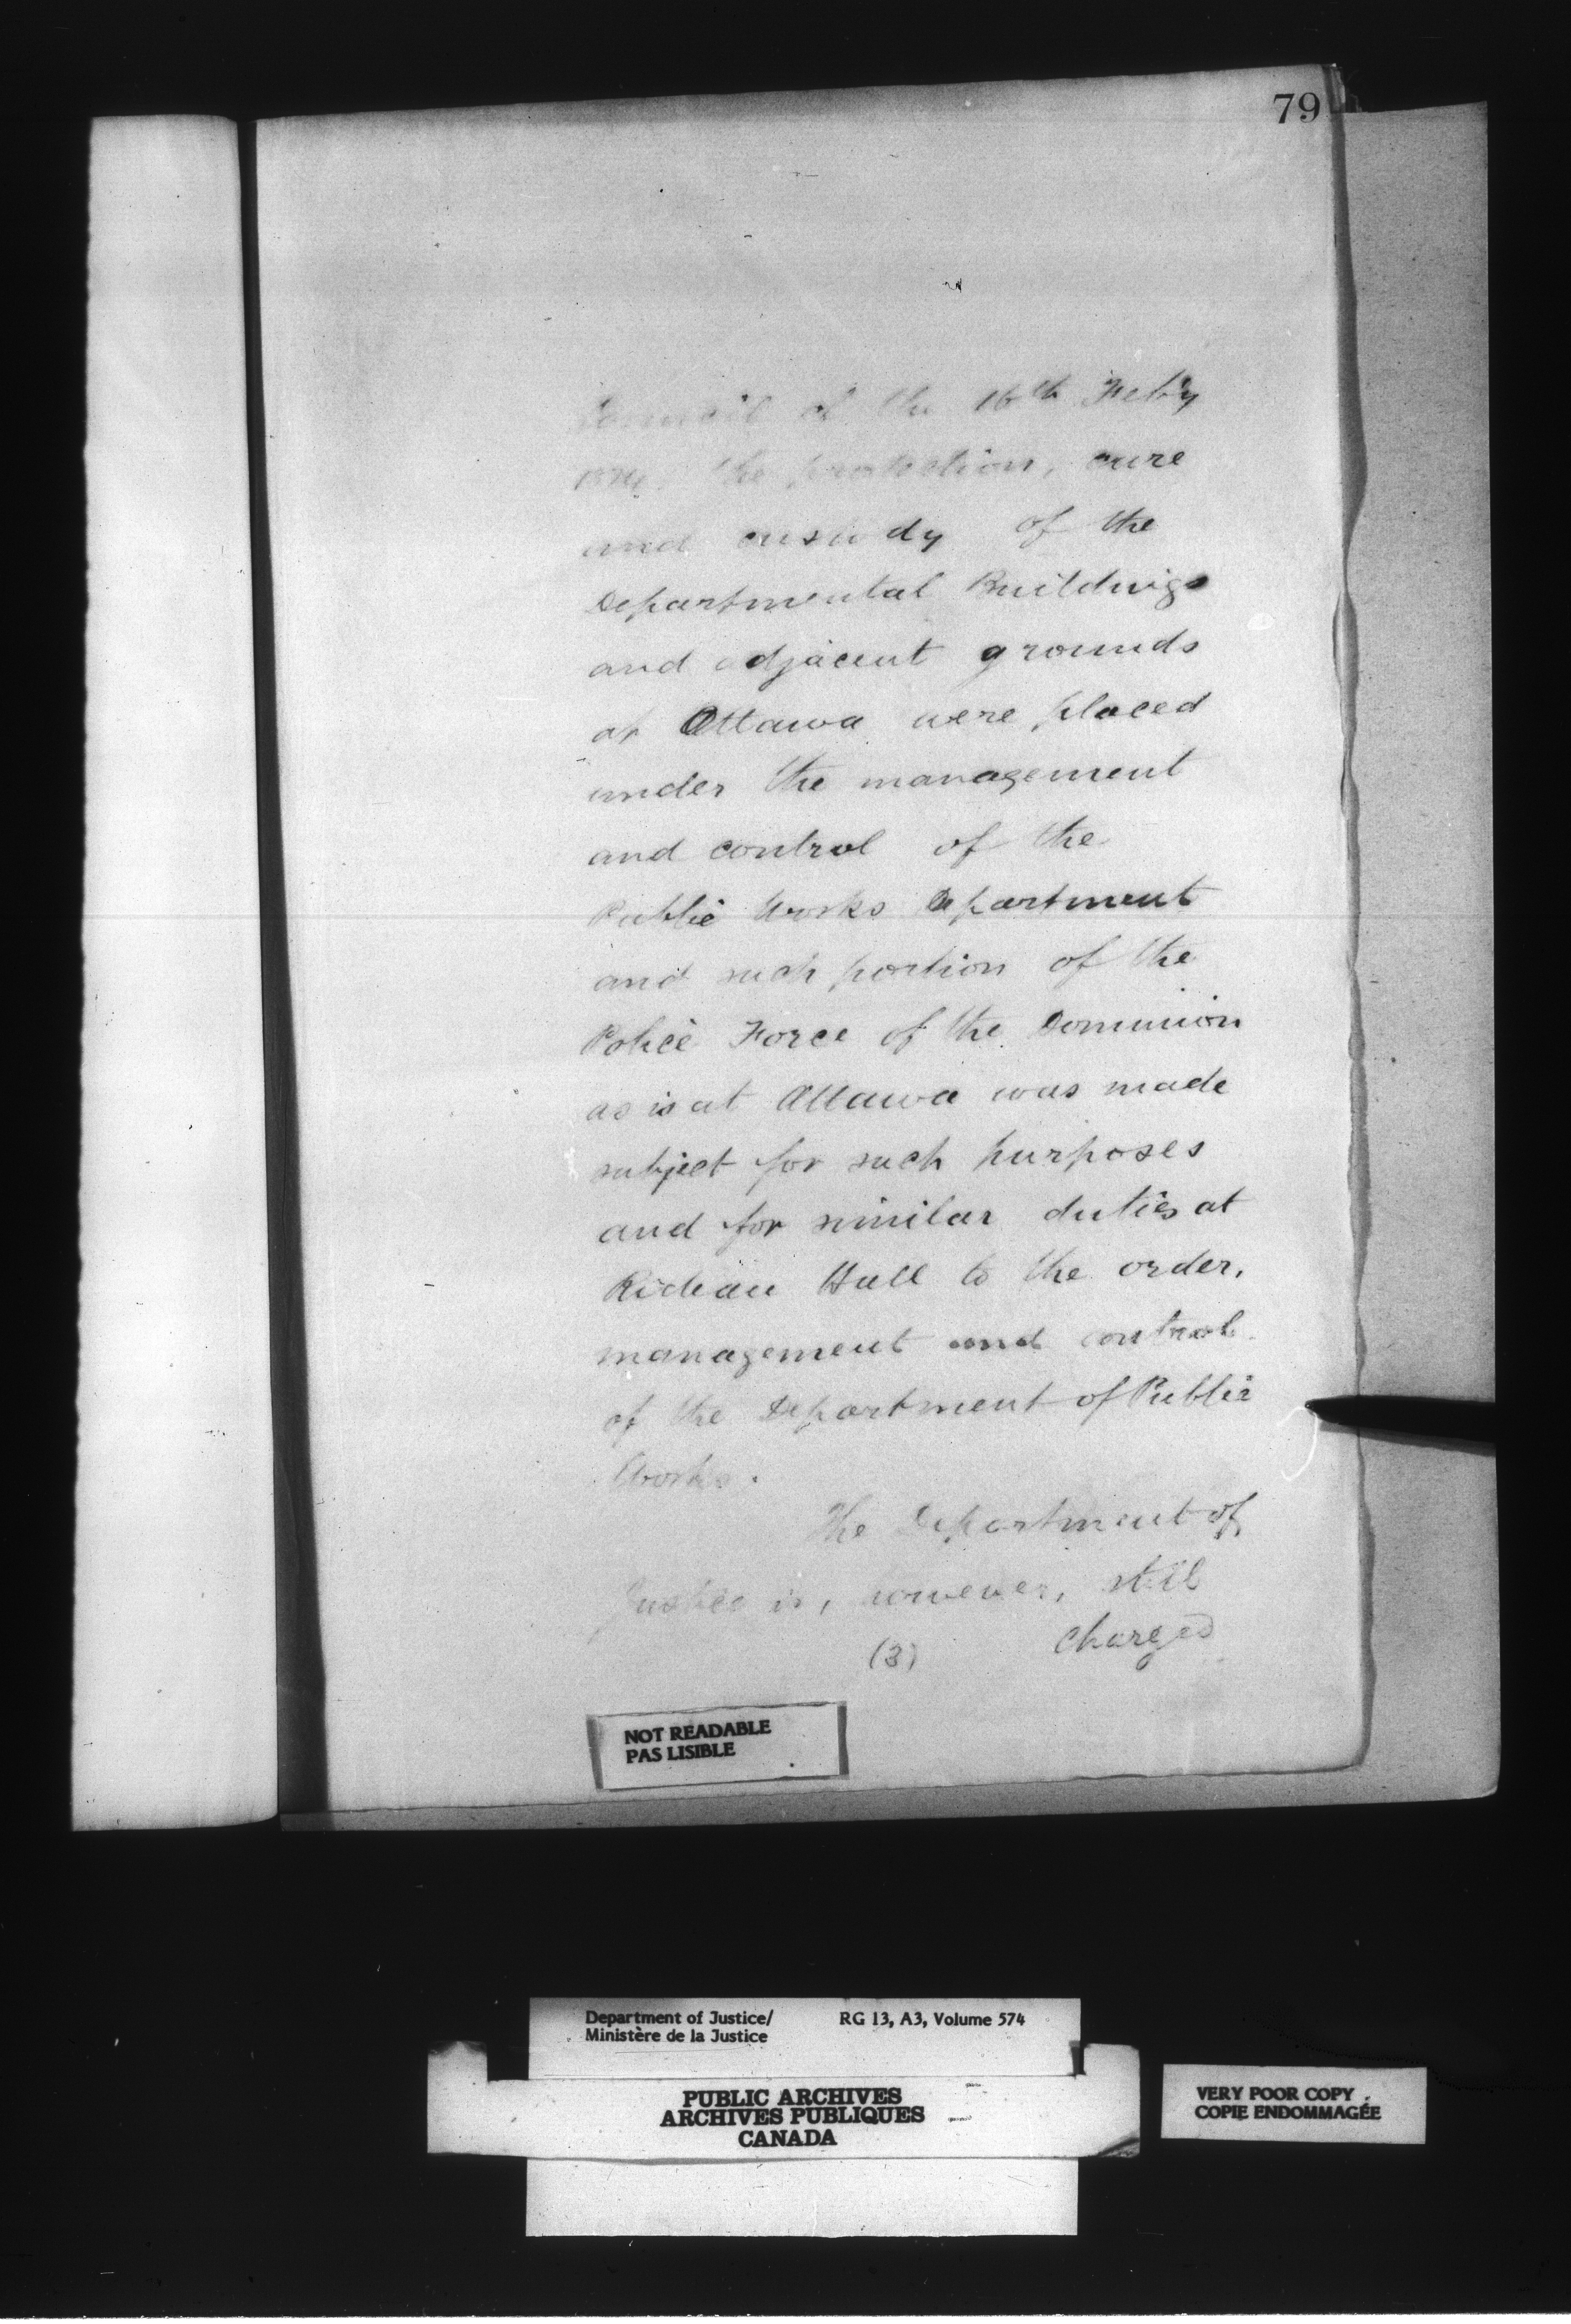 79
Council of the 16th Feb'y
1874. the protection, care
and custody of the
Departmental Buildings
and adjacent grounds
at Ottawa were placed
under the management
and control of the
Public Works Department
and such portion of the
Police Force of the Dominion
as is at Ottawa was made
subject for such purposes
and for similar duties at
Rideau Hall to the order,
management and control
of the Department of Public
Works.
The Department of
Justice is, however, still
(3) charged
NOT READABLE
PAS LISIBLE
Department of Justice/ RG 13, A3, Volume 574
Ministère de la Justice
PUBLIC ARCHIVES
ARCHIVES PUBLIQUES
CANADA
VERY POOR COPY
COPIE ENDOMMAGÉE